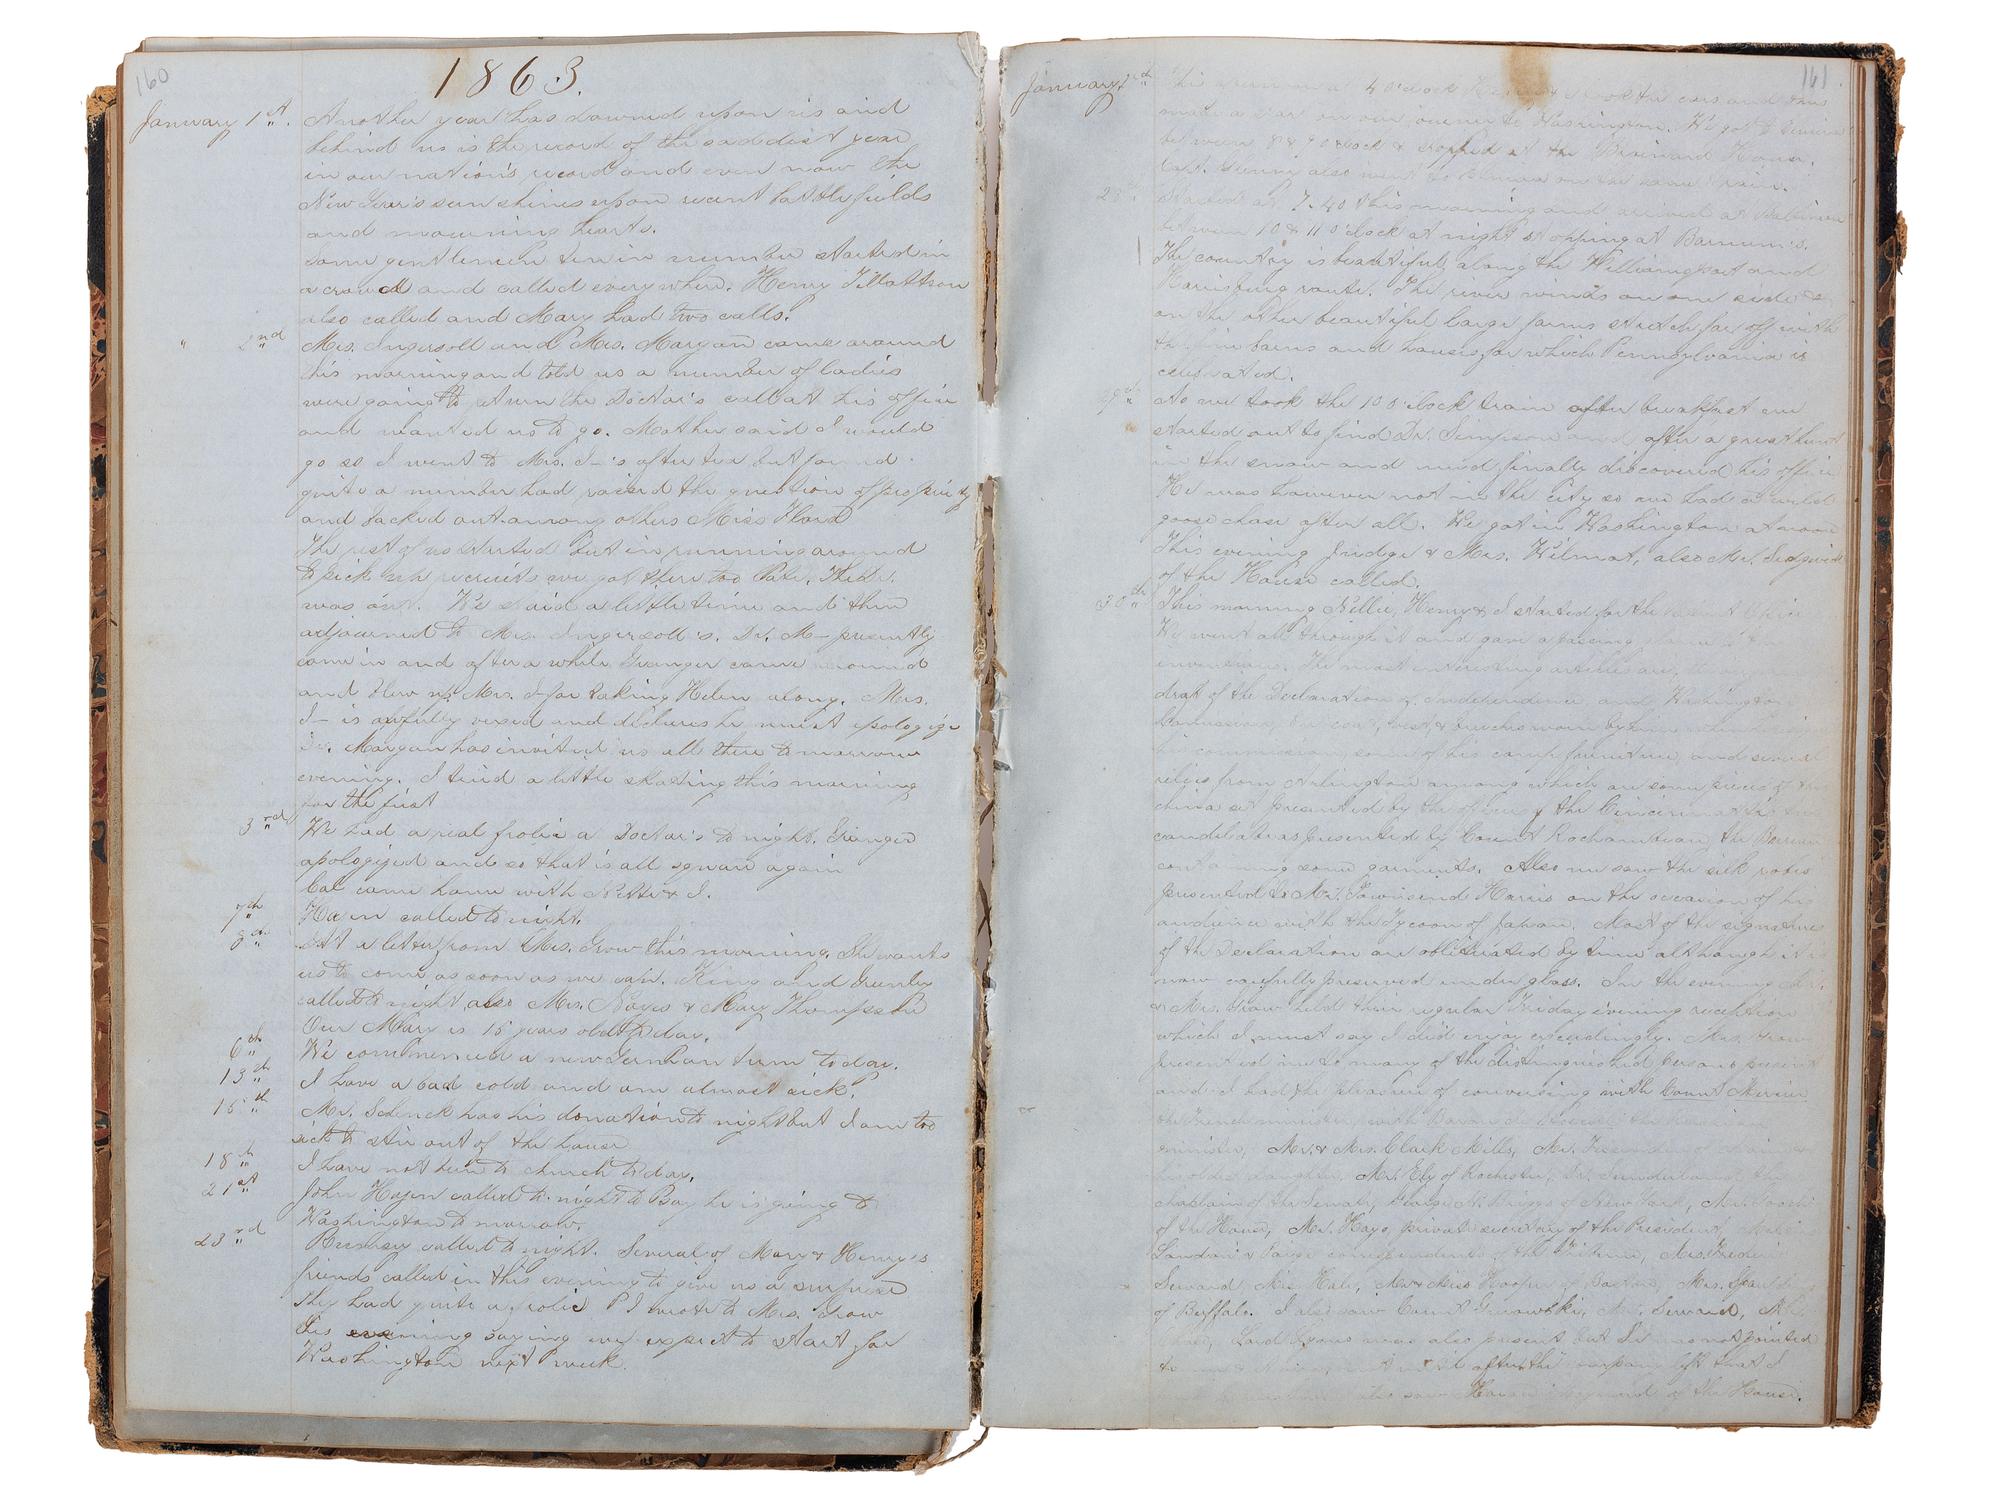 160
1863.
January 1st. Another year has dawned upon us and
behind us is the record of the saddest year
in our nation's record and even now the
New Year's sun shines upon recent battlefields
and mourning hearts.
Some gentlemen ten in number started in
a crowd and called everywhere. Henry Tillottson
also called and Mary had two calls.
" 2nd Mrs. Ingersoll and Mrs. Morgan came around
this morning and told us a number of ladies
were going to return the Doctor's call at his office
and wanted us to go. Mother said I would
go so I went to Mrs. I—'s after tea but found
quite a number had raised the question of propriety
and backed out among others Miss Hand
The rest of us started but in running around
to pick up recruits we got there too late. The Dr.
was out. We staid a little time and then
adjourned to Mrs. Ingersoll's. Dr. M— presently
came in and after a while Granger came around
and blew up Mrs. I— for taking Helen along. Mrs.
I— is awfully vexed and declares he must apologize
Dr. Morgan has invited us all there tomorrow
evening. I tried a little skating this morning
for the first
3rd We had a real frolic a Doctor's to night. Granger
apologized and so that is all square again
Cal came home with Nettie & I.
7th called to night.
8th a letter from Mrs. Grow this morning. She wants
us to come as soon as we can. King and
called to night also Mrs. Noyes & Mary Thompson
Our Mary is 15 years old to day.
6th We commenced a new German term to day.
13th I have a bad cold and am almost sick.
15th Mr. Schenck has his donation to night but I am too
sick to stir out of the house
18th I have not been to church to day.
21st John Hazen called to night to Say he is going to
Washington to morrow.
23rd Rumsey called to night. Several of Mary & Henry's
friends called in this evening to give us a surprise
They had quite a frolic I wrote to Mrs. Grow
this evening saying we expect to start for
Washington next week.
161
January This afternoon at 4 o'clock Henry & I took the cars and thus
made a start on our journey to Washington. We got to Elmira
between 8 & 9 o'clock & stopped at the Brainard House.
also went to Elmira on the same train.
28th Started at 7.40 this morning and arrived at Baltimore
between 10 & 11 o'clock at night stopping at Barnum's.
The country is beautiful along the Williamsport and
Harrisburg route. The river winds on one side &
on the other beautiful large farms stretch far off with
the fine barns and houses for which Pennsylvania is
celebrated.
29th As we took the 10 o'clock train after breakfast we
started out to find Dr. Simpson and after a great hunt
in the snow and mud finally discovered his office
He was however not in the city so we had a wild
goose chase after all. We got in Washington at noon
This evening Judge & Mrs. Wilmot, also Mr. Sedgwick
of the House called.
30th This morning Nellie, Henry & I started for the Patent Office
We went all through it and gave a passing
inventions. The most interesting articles are,
draft of the Declaration of Independence and Washington's
Commission, the coat, vest, & breeches worn by him when he resigned
his commission, some of his camp furniture, and several
relics from Arlington among which are some pieces of the
china set presented by the officers of the Cincinnati
candelabras presented by Count Rochambeau, the Bureau
containing some garments. Also we saw the silk robes
presented to Mr. Townsend Harris on the occasion of his
audience with the Tycoon of Japan. Most of the signatures
of the Declaration are obliterated by time although it is
now carefully preserved under glass. In the evening Mr.
& Mrs. Grow held their regular Friday evening reception
which I must say I did enjoy exceedingly. Mrs. Grow
presented me to many of the distinguished persons present
and I had the pleasure of conversing with Count Mercier
the French minister, with Baron de Stoeckl the Russian
minister, Mr. & Mrs. Clark Mills, Mr. Fessenden of Maine &
his daughter, Mr. Ely of Rochester, Dr. Sunderland the
chaplain of the Senate, George N. Briggs of New York, Mr.
of the House, Mr. Hays, private secretary of the President,
& Paige correspondents of the Tribune, Mrs. Frederic
Seward Mrs. Hale, Mr & Miss Hooper of Boston, Mrs. Spaulding
of Buffalo. I also saw Count Gurowski, Mr. Seward,
Lord Lyons was also present but he was not pointed
to me until after the company left that I
also saw of the House.